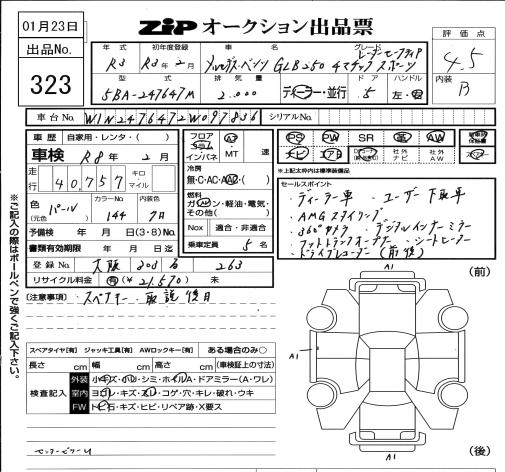 01月23日
ZIP オークション出品票
出品No.
323
年式 初年度登録 車名 グレード
R3 R3年2月 メルセデス・ベンツ GLB250 4マチック スポーツ レーダーセーフティP
型式 排気量 ドア ハンドル
5BA-247647M 2.000 ディーラー・並行 5 左・右
評価点
4.5
内装
B
車台No. W1N2476472W097836 シリアルNo.
車歴 自家用・レンタ・( )
車検 R8年 2月
走行 40.757 キロ マイル
色(元色) パール カラーNo. 144 内装色 クロ
予備検 年 月 日(3・8)No.
書類有効期限 年 月 日迄
登録No. 大阪 303 る 263
リサイクル料金 有(¥21.570) 未
フロア コラム インパネ A7 MT 速
冷房
無・C・AC・AAC・( )
燃料
ガソリン・軽油・電気・その他( )
Nox 適合・非適合
乗車定員 5名
PS PW SR 革 AW
ナビ エアB 社外ナビ 社外AW
※上記太枠内は標準装備品
セールスポイント
・ディーラー車 ・ユーザー下取車
・AMGスタイリング
・360°カメラ ・デジタルインナーミラー
・フットトランクオープナー ・シートヒーター
・ドライブレコーダー(前後)
[注意事項] ・スペアキー・取説後日
スペアタイヤ[有] ジャッキ工具[有] AWロックキー[有] ある場合のみ○
長さ cm 幅 cm 高さ cm (車検証上の寸法)
検査記入
外装 小キズ・小凹・シミ・ホイルA・ドアミラー(A・ワレ)
室内 ヨゴレ・キズ・スレ・コゲ・穴・キレ・破れ・ウキ
FW トビ石・キズ・ヒビ・リペア跡・X要ス
A1
(前)
A1
A1
(後)
※ご記入の際はボールペンで強くご記入下さい。